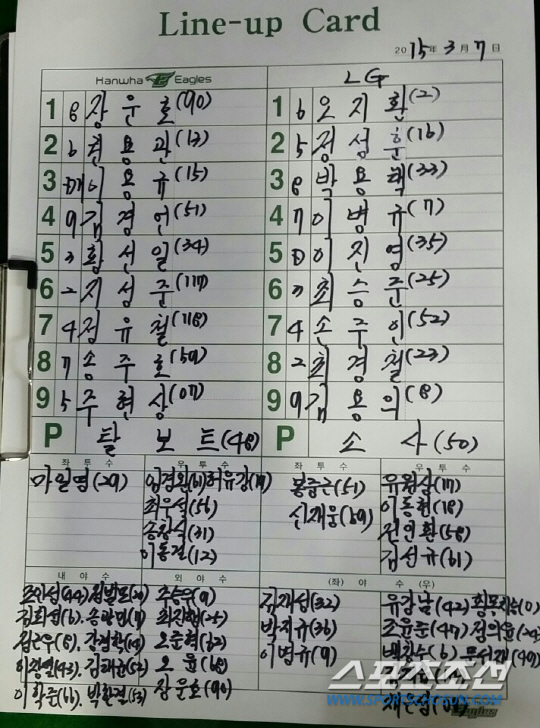 Line-up Card
2015年 3月 7日
Hanwha Eagles LG
1 8 장운호(90) 1 6 오지환(2)
2 6 권용관(13) 2 5 정성훈(16)
3 DH 이용규(15) 3 8 박용택(33)
4 9 김경언(51) 4 7 이병규(7)
5 3 황선일(34) 5 D 이진영(35)
6 2 지성준(117) 6 3 최승준(25)
7 4 정유철(118) 7 4 손주인(52)
8 7 송주호(59) 8 2 최경철(23)
9 5 주현상(07) 9 9 김용의(8)
P 탈보트(48) P 소사(50)
좌투수 우투수 좌투수 우투수
마일영(29) 임경완 허유강 봉중근(51) 유원상(17)
최우석(56) 신재웅(59) 이동현(18)
송창식(31) 전인환(58)
이동걸(12) 김선규(61)
내야수 외야수 (좌) 야수 (우)
조인성(44) 김재성(32) 유강남(42)
김회성(6) 송광민(7) 최진행(25) 박지규(36) 조윤준(47) 정의윤
김근우(8) 강경학(14) 오준혁(62) 이병규(9)
이창열(43) 오윤(68)
이학준(66) 박한결(53) 장운호(90)
스포츠조선
WWW.SPORTSCHOSUN.COM
Eagles